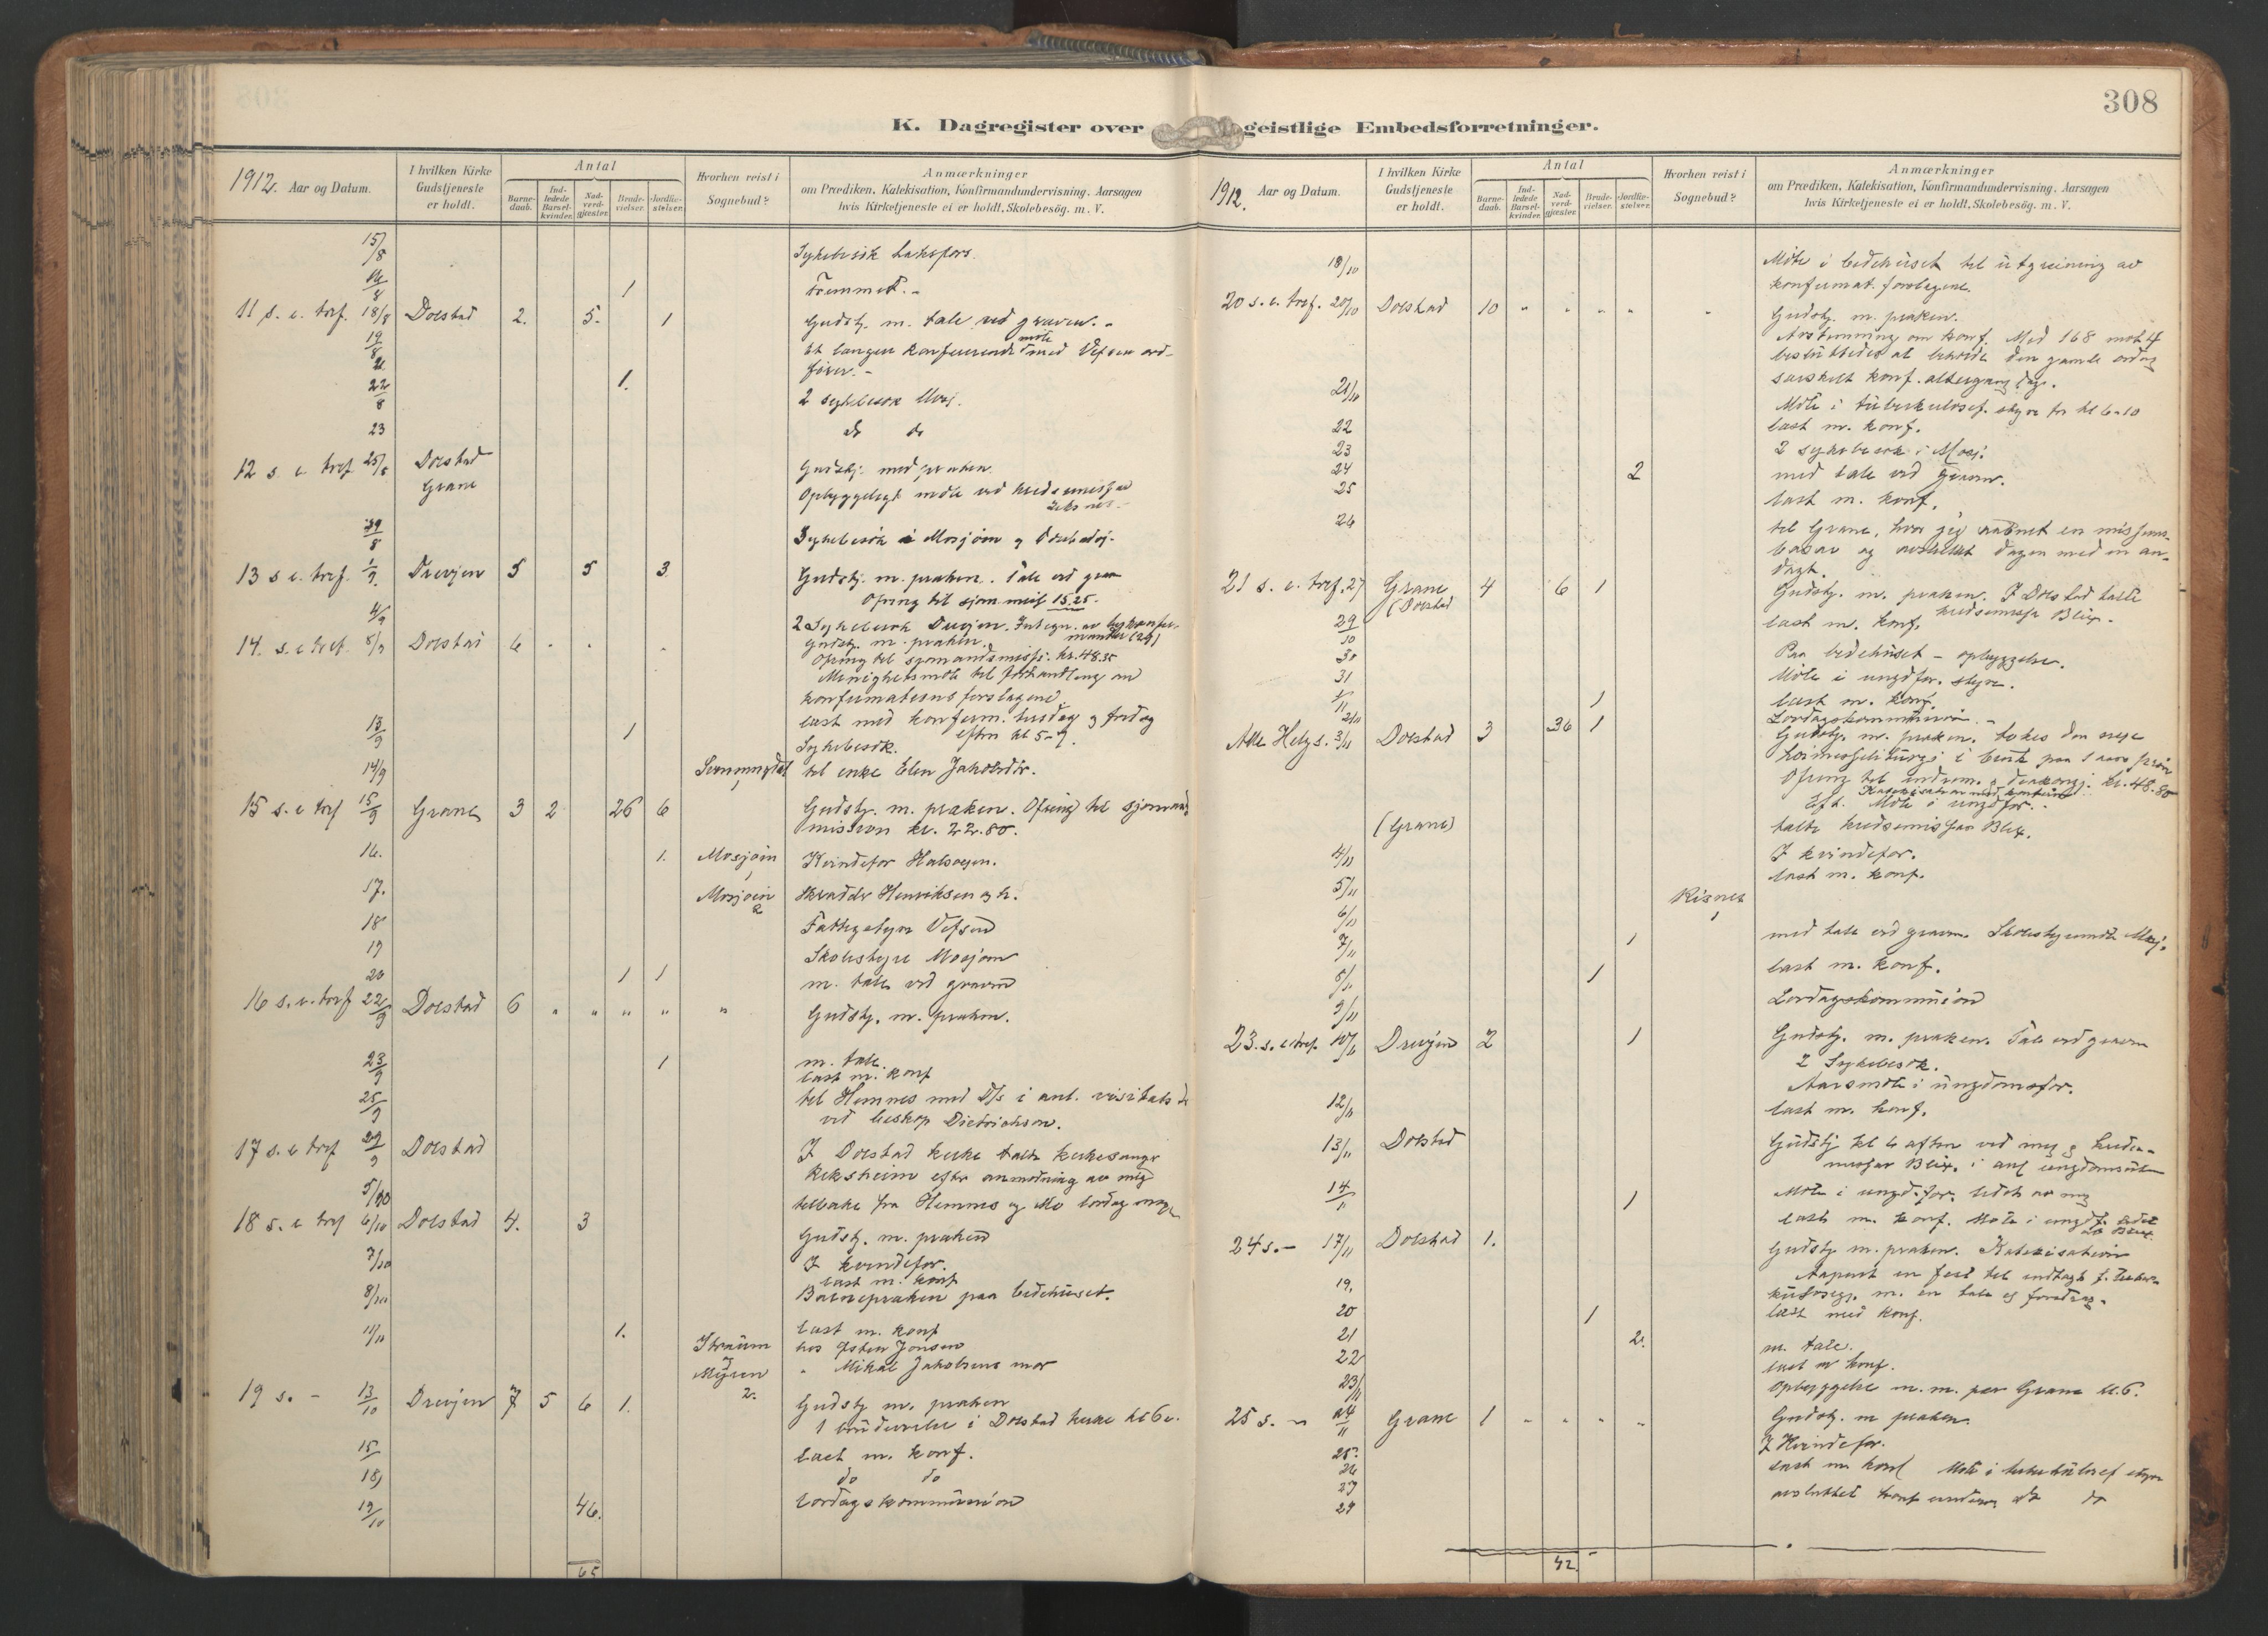 308
K. Dagregister over geistlige Embedsforretninger.
1912. Aar og Datum.
I hvilken Kirke Gudstjeneste er holdt.
Antal
Barne-daab.
Ind-ledede Barsel-kvinder.
Nad-verd-gjæster.
Brude-vielser.
Jordfæ-stelser.
Hvorhen reist i Sognebud?
Anmærkninger
om Prædiken, Katekisation, Konfirmandundervisning. Aarsagen
hvis Kirketjeneste ei er holdt, Skolebesög. m. V.
15/8 Sykebesøk Laksfors.
16/8 1 Fremmed. -
11 s. e. tref. 18/8 Dolstad 2. 5. 1 Gudstj. m. tale ved graven. -
19/8 møte med Vefsen ord-
fører. -
22/8 1. 2 sykebesøk Mosj.
23 do do
12 s e tref 25/8 Dolstad Gudstj. med præken.
Grane Opbyggeligt møte ved kredsmissjær
29/8 Sykebesøk i Mosjøen
13 s e. tref. 1/9. Drevjen 5 5 3 Gudstj. m. præken. Tale ved grav
Ofring til sjøm. miss 15.25.
4/9 2 Sykebesøk Drevjen.
14. s. e tref. 8/9 Dolstad 6 Gudstj. m. præken.
Ofring til sjømandsmissj. kr. 48.35
Menighetsmøte til forhandling om
konfirmationsforslagene
læst med konfirm. tirsdag og fredag
efter kl 5-7.
13/9 1 Sykebesøk.
14/9 til enke Elen Jakobsdtr.
15 s. e tref 15/9 Grane 3 2 26 6 Gudstj. m. præken. Ofring til sjømands
mission kr. 22.80.
16. 1. Mosjøen 1 Kvindefor Halsøyen.
17. Mosjøen 2 Skrædder Henriksen og h.
18 Fattigstyre Vefsen
19 Skolestyre Mosjøen
20 1 1 m. tale ved graven
16 s. e. tref 22/9 Dolstad 6 " " " " " Gudstj. m. præken.
23/9 1 m. tale.
læst m. konf
25/9 til Hemnes med D/s i anl. visitats
ved biskop Dietrichson.
17 s. e tref 29/9 Dolstad I Dolstad kirke talte kirkesanger
Reksheim efter anmodning av mig
5/10 tilbake fra Hemnes og Mo lørdag
18 s. e tref 6/10 Dolstad 4. 3 Gudstj. m. præken
7/10 I kvindefor.
læst m. konf
8/10 Barnepræken paa bedehuset.
11/10 1. læst m. konf
Straum 1 hos Østen Jonsen
Myren 2. " Mikal Jakobsens mor
19 s. - 13/10 Drevjen 7 5 6 1. Gudstj m. præken
1 brudevielse i Dolstad kirke kl 6 e.
15 læst m. konf.
18 do do
19/10 46. Lørdagskommunion
65
1912. Aar og Datum.
I hvilken Kirke Gudstjeneste er holdt.
Antal
Barne-daab.
Ind-ledede Barsel-kvinder.
Nad-verd-gjæster.
Brude-vielser.
Jordfæ-stelser.
Hvorhen reist i Sognebud?
Anmærkninger
om Prædiken, Katekisation, Konfirmandundervisning. Aarsagen
hvis Kirketjeneste ei er holdt, Skolebesög. m. V.
18/10 Møte i bedehuset til utgreining av
konfirmat. forslagene.
20 s. e. tref. 20/10 Dolstad 10 " " " " " Gudstj. m. præken.
Avstemning om konf. Med 168 mot 4
besluttedes at beholde den gamle ordning
særskilt konf. altergang dag.
21/10 Møte i tuberkulosef. styre fra kl 6-10
22 læst m. konf.
23 2 sykebesøk i Mosj.
24 2 med tale ved graven.
25 læst m. konf.
26 til Grane, hvor jeg aabnet en missjons-
basar og avsluttet dagen med en an-
dagt.
21 s. e. tref. 27 Grane 4 6 1 Gudstj. m. præken. I Dolstad talte
(Dolstad kredsmissjr Blix.
29/10 læst m. konf.
30 Paa bedehuset - opbyggelse.
31 Møte i ungdfor. styre.
1/11 1 læst m. konf.
2/11 Lørdagskommunion. -
Alle Helgs. 3/11 Dolstad 3 36 1 Gudstj. m. præken. tokes den nye
høimesseliturgi i bruk paa
Ofring til kr. 48.80
Eft. Møte i ungdfor.
(Grane) talte kredsmissjær Blix.
4/11 I kvindefor.
5/11 læst m. konf.
6/11 Risnes 1
7/11 1 med tale ved graven. Skolestyremøte Mosj.
8/11 1 læst m. konf.
9/11 Lørdagskommunion
23. s. e tref. 10/11 Drevjen 2 1 Gudstj. m. præken. Tale ved graven
2 Sykebesøk.
Aarsmøte i ungdomsfor.
12/11 læst m. konf.
13/11 Dolstad Gudstj kl 6 aften ved mig og kreds-
missjær Blix. i anl
14/11 1 Møte i ungd. for. ledet av mig
læst m. konf. Møte i ungdf. ledet
av Blix.
24 s. - 17/11 Dolstad 1. Gudstj m. præken. Katekisation
en fest til indtægt f. tuber-
kulosesj. m. en tale og foredrag.
19. læst med konf.
20 1
21 2. m. tale.
22 læst m konf.
23/11 Opbyggelse m. m. paa Grane kl. 6.
25 s. - 24/11 Grane 1 " " " " Gudstj. m præken.
25. I Kvindefor.
26 læst m konf Møte i tuberkulosef styre
27 avsluttet konf do
29
42